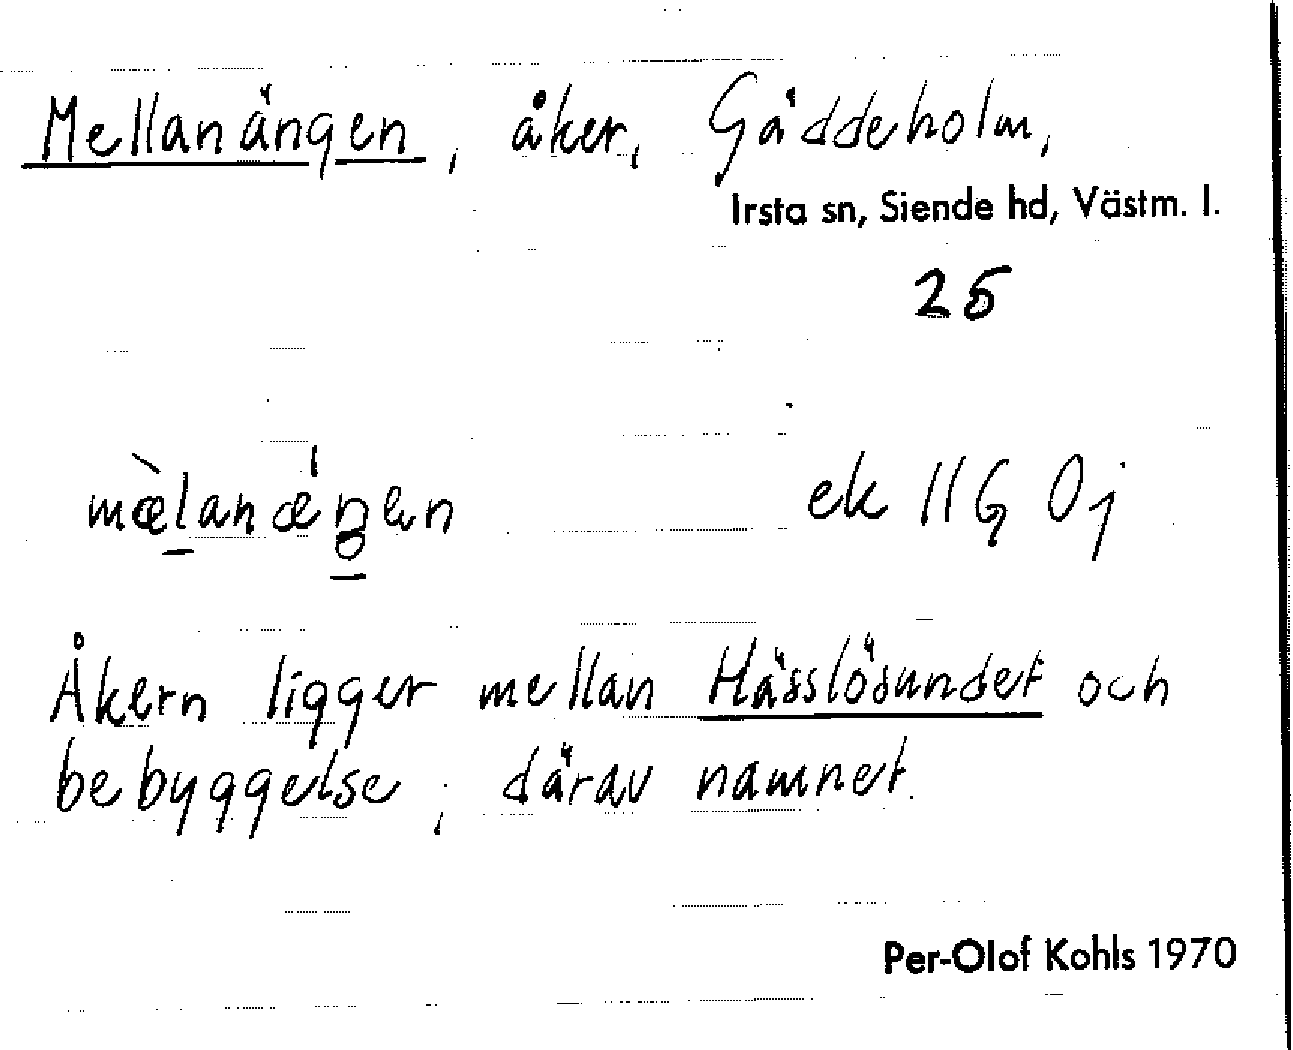 Mellanängen, åker, Gäddeholm,
Irsta sn, Siende hd, Västm. l.
25
mæ̀lanǽŋen ek 11G 0j
Åkern ligger mellan Hässlösundet och
bebyggelse; därav namnet.
Per-Olof Kohls 1970